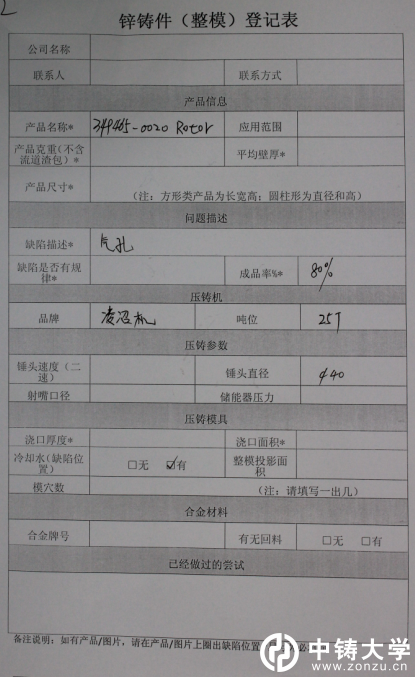 锌铸件（整模）登记表
公司名称
联系人 联系方式
产品信息
产品名称* 349465-0020 Rotor 应用范围
产品克重(不含流道渣包)* 平均壁厚*
产品尺寸* （注：方形类产品为长宽高；圆柱形为直径和高）
问题描述
缺陷描述* 气孔
缺陷是否有规律* 成品率%* 80%
压铸机
品牌 吨位 25T
压铸参数
锤头速度（二速） 锤头直径 φ40
射嘴口径 储能器压力
压铸模具
浇口厚度* 浇口面积*
冷却水(缺陷位置) □无 ☑有 整模投影面积
模穴数 （注：请填写一出几）
合金材料
合金牌号 有无回料 □无 □有
已经做过的尝试
备注说明：如有产品/图片，请在产品/图片上圈出缺陷位置
中铸大学
www.zonzu.cn